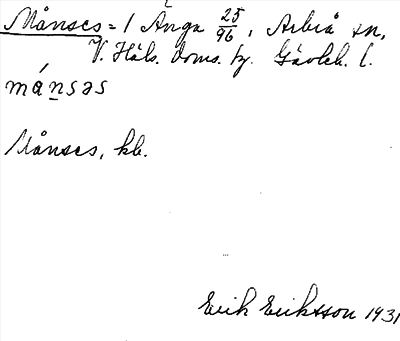 Månses = 1 Änga 25/96, Arbrå sn,
V. Häls. doms. hy. Gävleb. l.
mánsəs
Månses, kb.
Erik Eriksson 1931